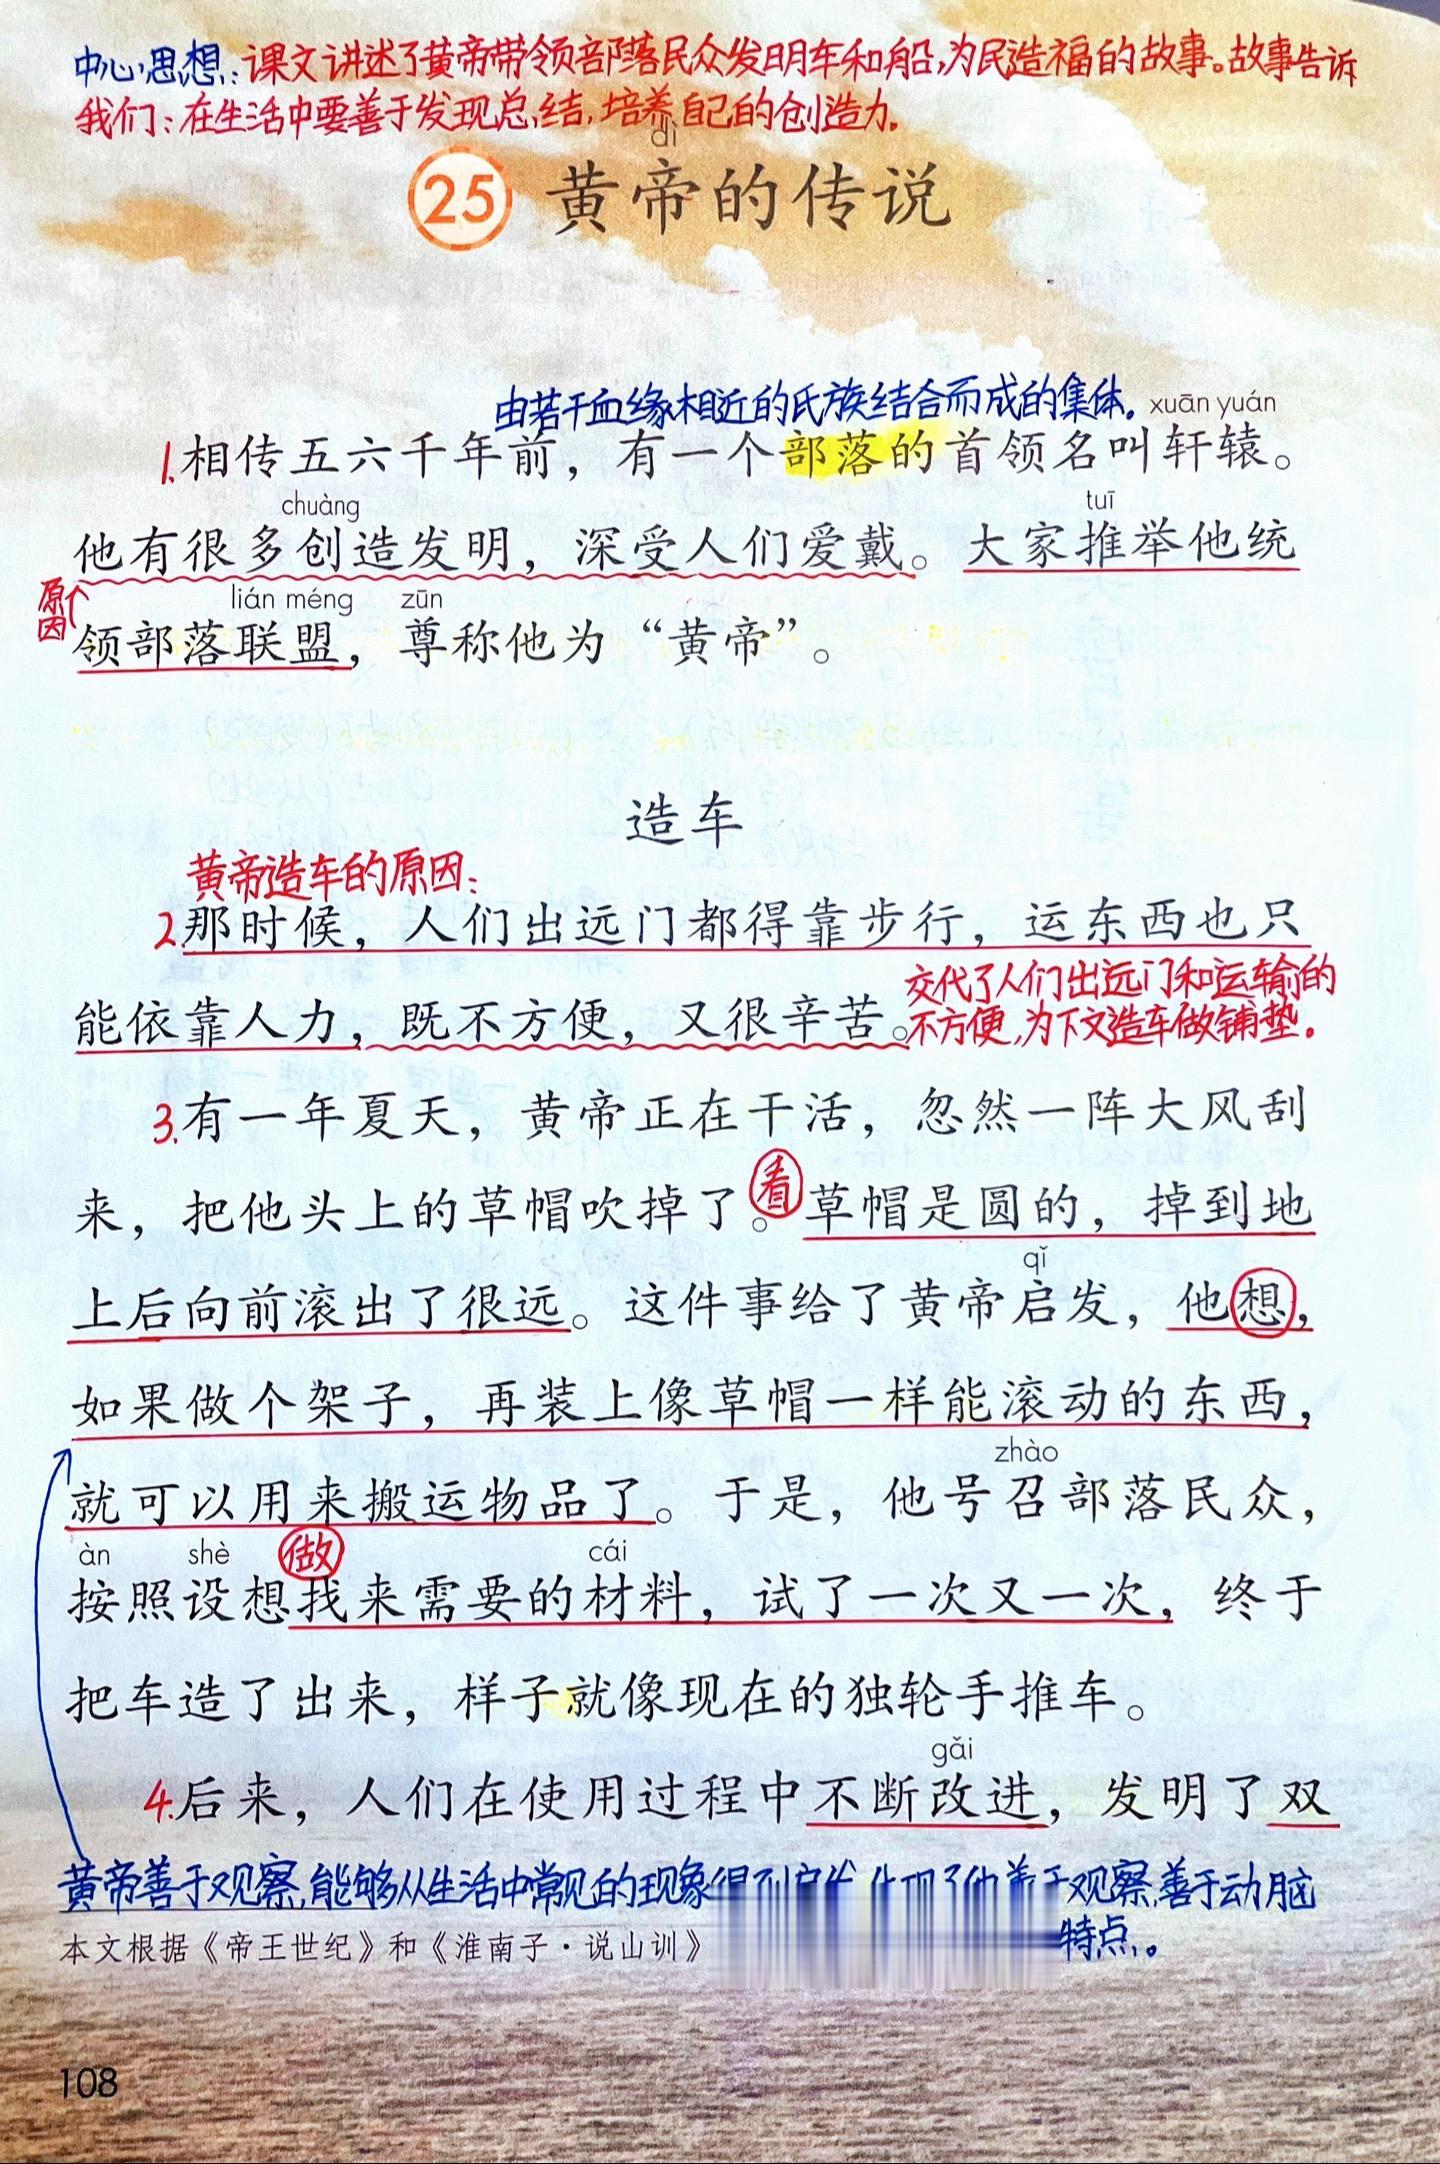 中心思想：课文讲述了黄帝带领部落民众发明车和船，为民造福的故事。故事告诉
我们：在生活中要善于发现总结，培养自己的创造力。
dì
25 黄帝的传说
由若干血缘相近的氏族结合而成的集体。
xuān yuán
1.相传五六千年前，有一个部落的首领名叫轩辕。
chuàng tuī
他有很多创造发明，深受人们爱戴。大家推举他统
原因
lián méng zūn
领部落联盟，尊称他为“黄帝”。
造车
黄帝造车的原因：
2.那时候，人们出远门都得靠步行，运东西也只
能依靠人力，既不方便，又很辛苦。
交代了人们出远门和运输的
不方便，为下文造车做铺垫。
3.有一年夏天，黄帝正在干活，忽然一阵大风刮
看
来，把他头上的草帽吹掉了。草帽是圆的，掉到地
qǐ
上后向前滚出了很远。这件事给了黄帝启发，他想，
如果做个架子，再装上像草帽一样能滚动的东西，
zhào
就可以用来搬运物品了。于是，他号召部落民众，
àn shè 做 cái
按照设想找来需要的材料，试了一次又一次，终于
把车造了出来，样子就像现在的独轮手推车。
gǎi
4.后来，人们在使用过程中不断改进，发明了双
黄帝善于观察，能够从生活中常见的现象 观察，善于动脑
特点。
本文根据《帝王世纪》和《淮南子·说山训》
108